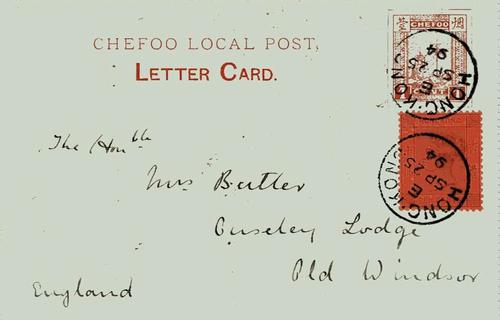 CHEFOO LOCAL POST,
LETTER CARD.
烟
CHEFOO
1 CENT 1
HONG-KONG
E
SP 25
94
HONG-KONG
E
SP 25
94
The Hon'ble
Mrs Butler
Ouseley Lodge
Old Windsor
England